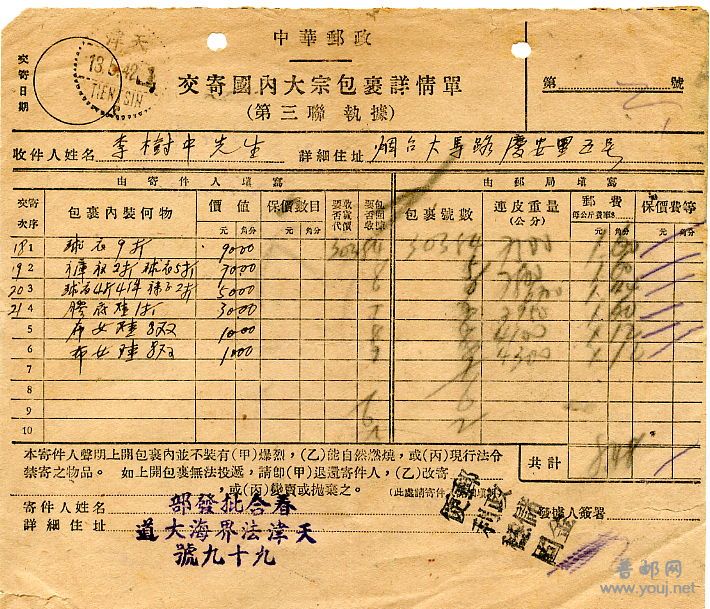 中華郵政
交寄國內大宗包裹詳情單
(第三聯 執據)
第 號
交寄日期
天津
13.5.42
TIENTSIN
收件人姓名 李樹中先生 詳細住址 烟台大馬路慶安里五号
由寄件人填寫 由郵局填寫
交寄次序 包裹內裝何物 價值 保價數目 要否收貨代價 要否包回收 包裹號數 連皮重量(公分) 郵費 每公斤費率$ 保價費等
元 角分 元 角分 元 角分 元 角分
18 1 球衣9打 9000 30384 30384 1.60
19 2 7000 8
20 3 5000
21 4 膠底鞋1打 3000 1.60
5 布女鞋8双 1000 8 4100
6 布女鞋8双 1000 9 4300
7
8
9
10
本寄件人聲明上開包裹內並不裝有(甲)爆烈,(乙)能自然燃燒,或(丙)現行法令
禁寄之物品。 如上開包裹無法投遞,請卽(甲)退還寄件人,(乙)改寄
,或(丙)變賣或拋棄之。 (此處請寄件
共計
寄件人姓名
詳細住址
春合批發部
天津法界海大道
九十九號
郵政儲金
便利穩固
發據人簽署
普邮网
www.youj.net